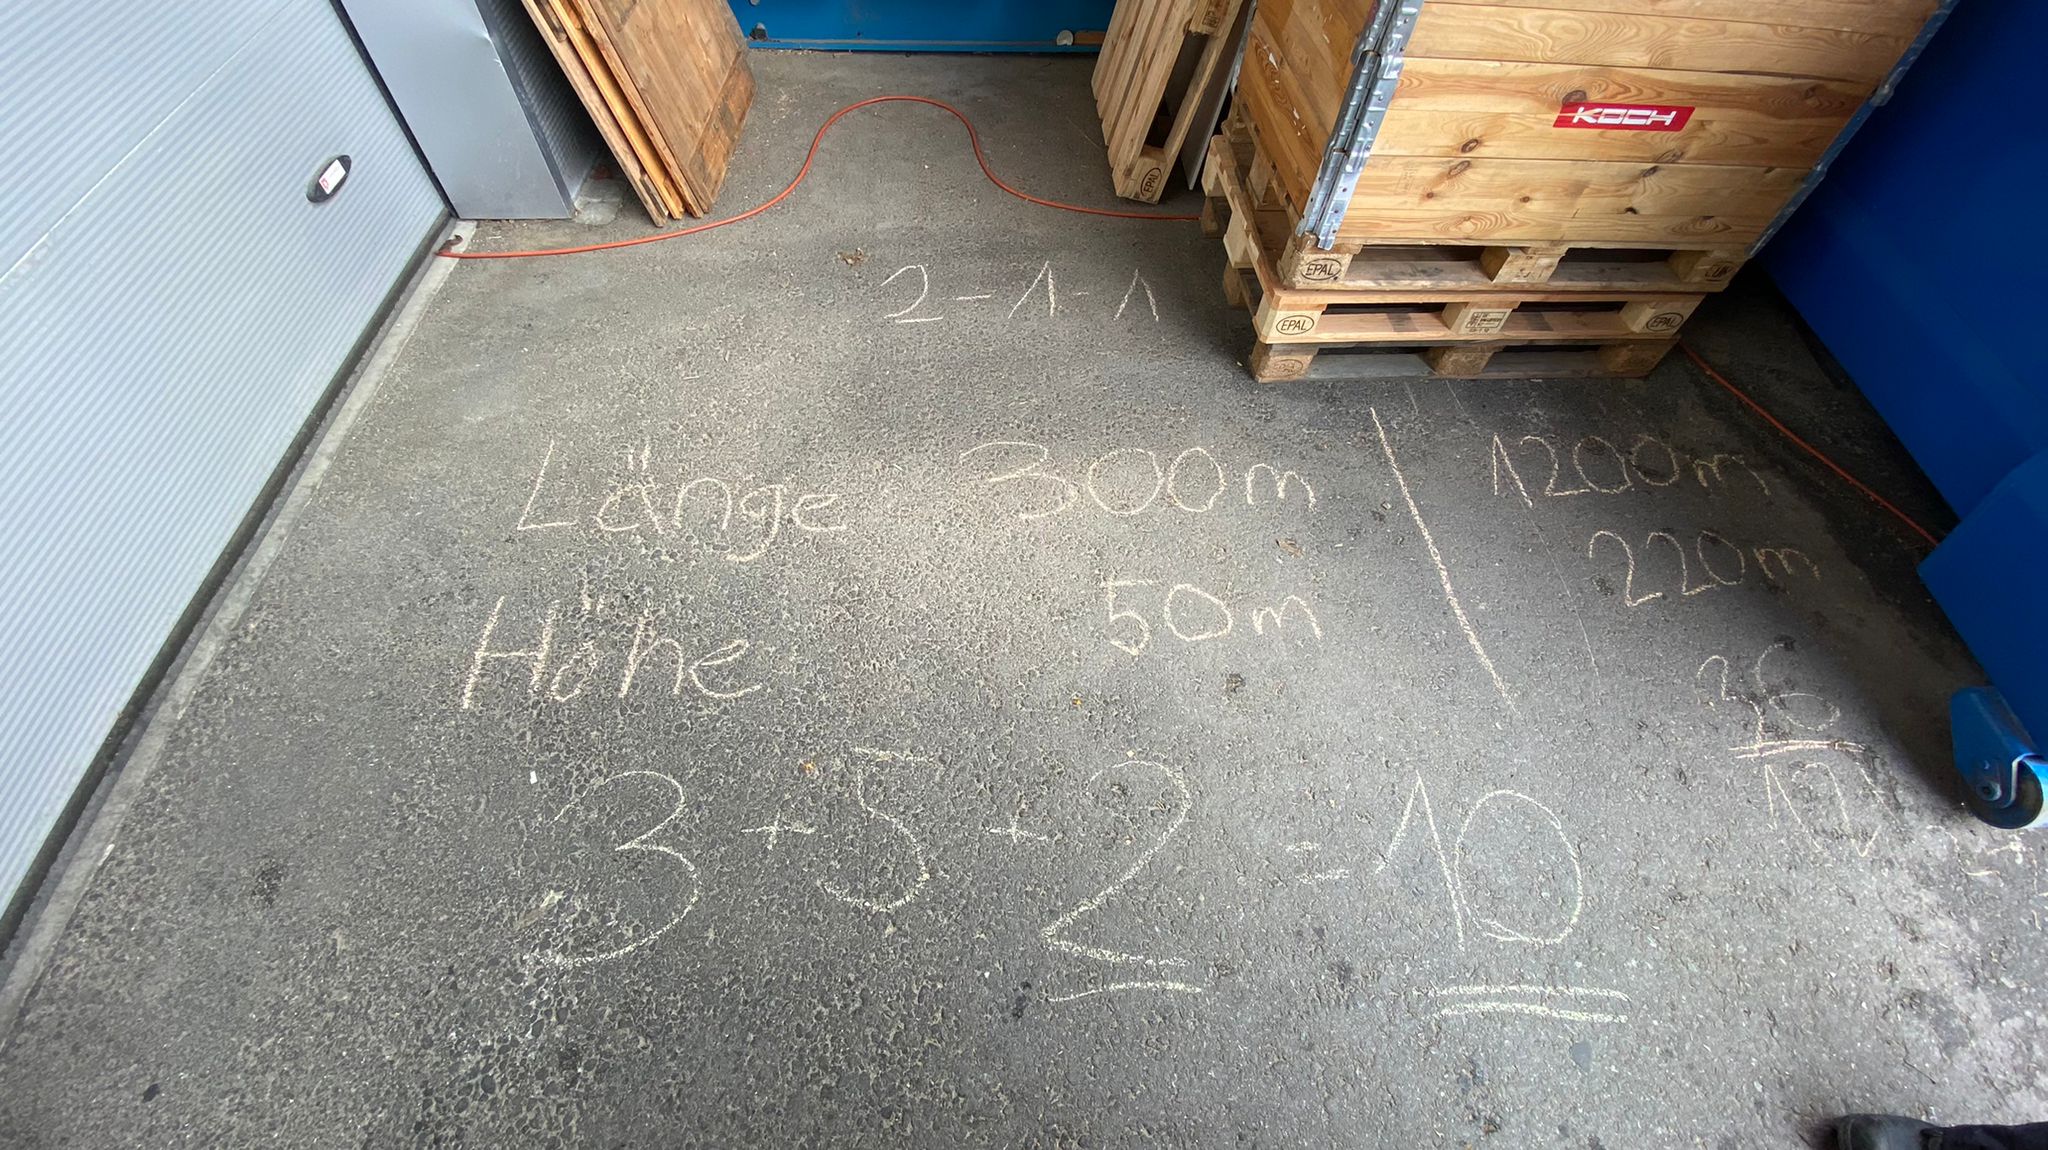 KOCH
EPAL
EPAL
EPAL
EPAL
2-1-1
Länge 300m | 1200m
Höhe 50m 220m
36
3+5+2=10